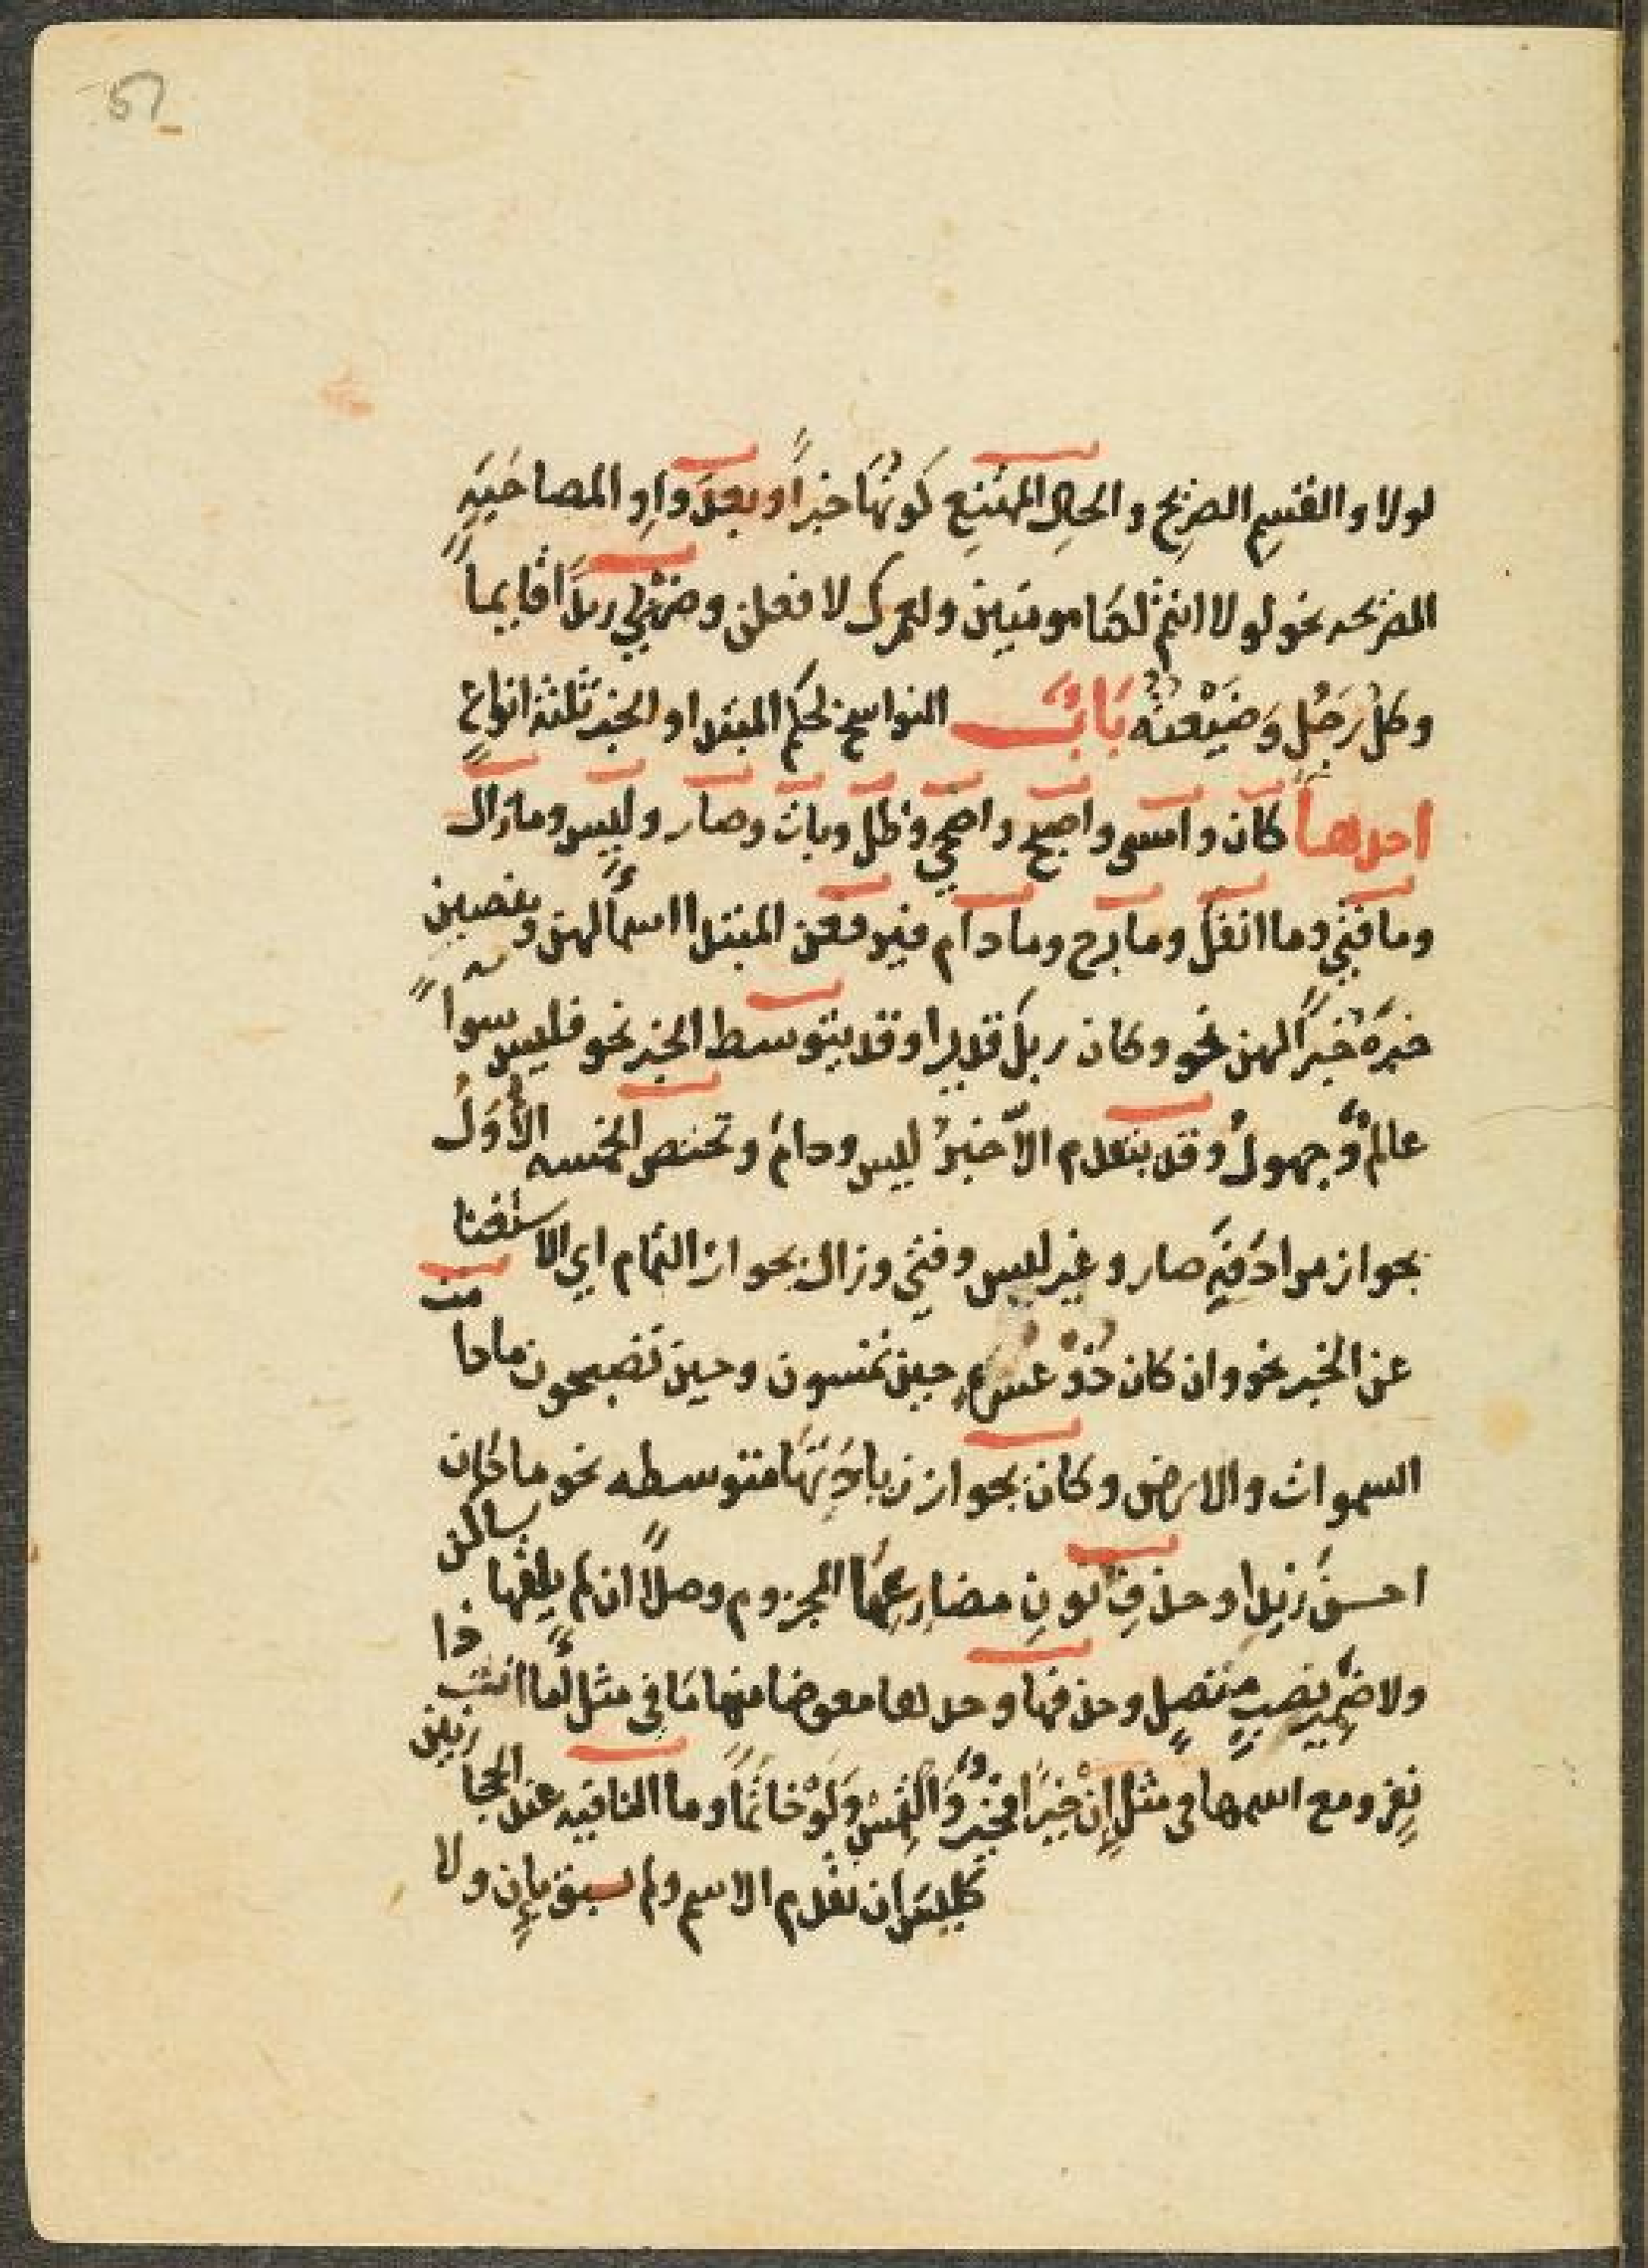 57
لولا والقسم الصريح والحال الممتنع كونها خبرًا وبعد واو المصاحبة
الصريحه نحو لولا انتم لكنا مومنين ولعمرك لافعلن وضربي زيدًا قايمًا
وكل رجل وضيعته باب النواسخ لحكم المبتدا والخبر ثلثة انواع
احدها كان وامسى واصبح واضحى وظل وبات وصار وليس ومازال
ومافتئ وما انفك ومابرح ومادام فيرفعن المبتدا اسمًا لهن وينصبن
خبره خبرًا لهن نحو وكان ربك قديرا وقد يتوسط الخبر نحو فليس سواءً
عالمٌ وجهولٌ وقد يتقدم الاّ خبرُ ليس ودام وتختص الخمسه الأُوَلُ
بجواز مرادفة صار وغير ليس وفتئ وزال بجواز التمام اي الاستغنا
عن الخبر نحو وان كان ذو عسرة حين تمسون وحين تصبحون مادامت
السموات والارض وكان بجواز زيادتها متوسطه نحو ما كان
احسن زيدا وحذف نون مضارعها المجزوم وصلاً ان لم يلقها ساكن
ولا ضمير نصبٍ متصلٍ وحذفها وحدها معوضا منها ما في مثل امّا انت ذا
نفر ومع اسمها في مثل إن خيرًا فخيرٌ والتمس ولو خاتمًا وما النافيه عند الحجازيين
كليس ان تقدم الاسم ولم يسبق بإن ولا